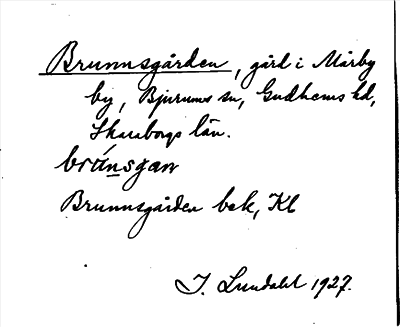 Brunnsgården, gård i Mårby
by, Bjurums sn, Gudhems hd,
Skaraborgs län.
brúnsgaṛ
Brunnsgården bok, Kl
I. Lundahl 1927.